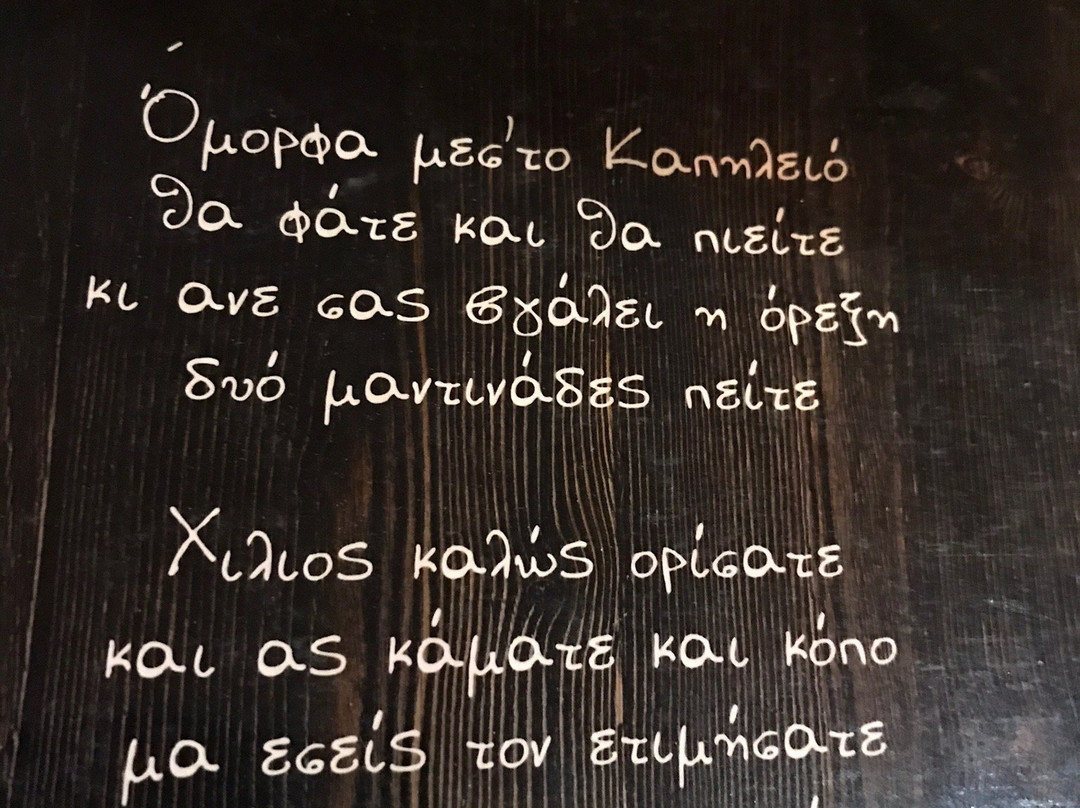 Όμορφα μεσ'το Καπηλειό
θα φάτε και θα πιείτε
κι ανε σας βγάλει η όρεξη
δυό μαντινάδες πείτε
Χιλιος καλώς ορίσατε
και ας κάματε και κόπο
μα εσείς τον ετιμήσατε